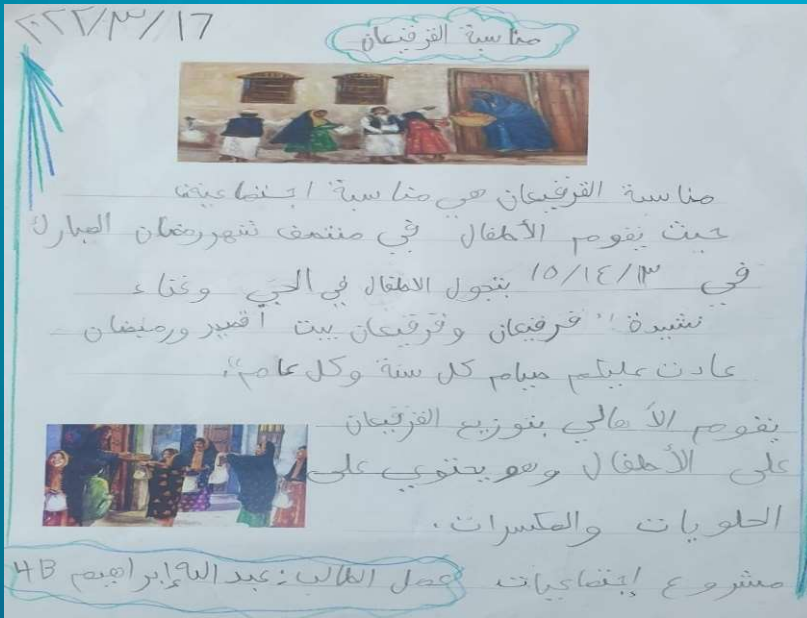 ٢٠٢٢/٣/١٦
مناسبة القرقيعان
مناسبة القرقيعان هي مناسبة اجتماعية،
حيث يقوم الأطفال في منتصف شهر رمضان المبارك
في ١٥/١٤/١٣ بتجول الاطفال في الحي وغناء
نشيدة "قرقيعان وقرقيعان بيت أقصير ورميضان
عادت عليكم صيام كل سنة وكل عام".
يقوم الأهالي بتوزيع القرقيعان
على الأطفال وهو يحتوي على
الحلويات والمكسرات.
مشروع إجتماعيات عمل الطالب: عبدالله إبراهيم 4B